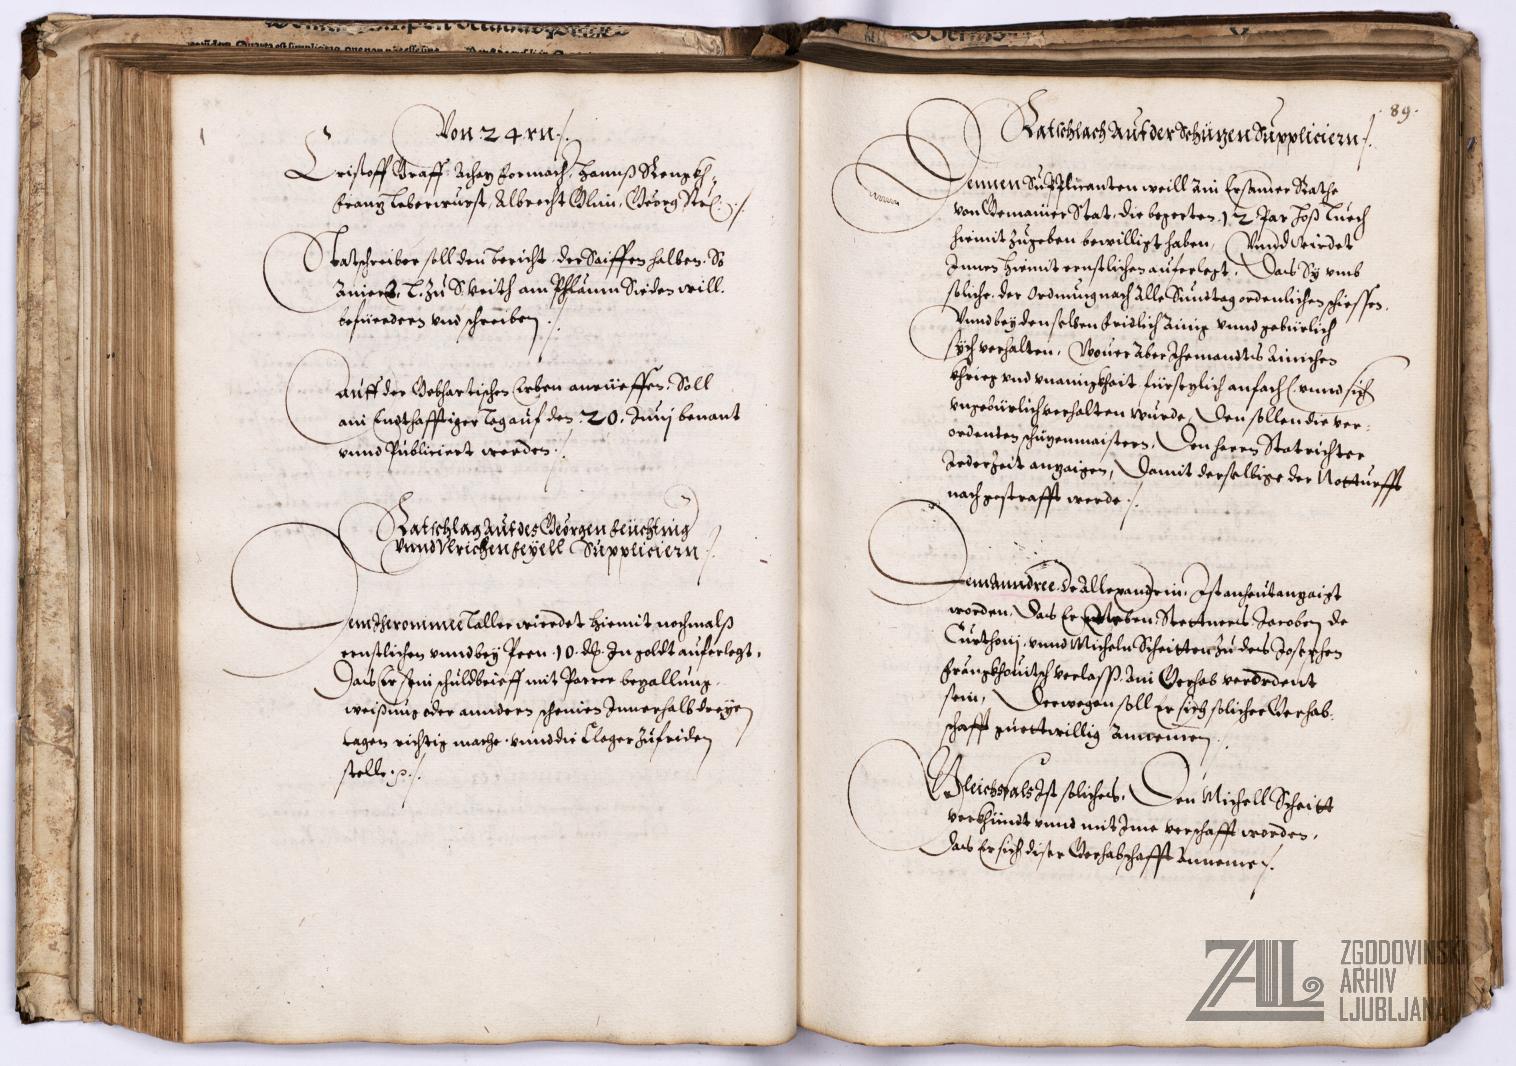 Von 24rn
Cristoff Graff. Achaz Cormach. Hannß
Franz Leberwurst, Albrecht Georg
Statschreiber soll den bericht der Saiffen halben. So
zu S. Veith am Phlaum Sieden will.
befüerdern und schreiben
Auff der Gebhartischen Erben anrüeffen, Soll
ain Endthafftiger Tag auf den 20. Junj benant
unnd Publiciert werden.
Ratschlag Auf des Geörgen feüchting
Unnd Ulrichen feyell Suppliciern
Dem Iheronimee Taller wierdet hiemit nochmalß
ernstlichen unnd bey Peen 10. In goldt auferlegt,
Das Er sein schuldbrieff mit Parer bezallung,
weißung oder anndern Innerhalb dreyen
tagen richtig mache, unnd die Cleger zufriden
stelle.
89.
Ratschlach Auf der Schüzen Suppliciern
Dennen Supplicanten weill Ain Ersamer Rathe
von Gemainer Stat, die begerten 12 Par Hoß Tuech
hiemit zugeben bewilligt haben, Unnd wirdet
Innen hiemit ernstlichen auferlegt, Das Sy umb
solliche, der Ordnung nach Alle Sundtag ordenlichen schiessen,
Unnd bey denselben fridlich Ainig unnd gebürlich
sych verhalten, Wouer Aber Jhemandts Ainichen
khrieg und unainigkhait anfach unnd sich
ungebürlich verhalten wurde, Den sollen die ver-
ordenten schüzenmaistern, Den herrn Statrichter
Jederzeit anzaigen, Damit dersellbige der Notturfft
nach gestrafft werde.
Dem Anndree de Allexandrin, Ist anheut anzaigt
worden, Das Er Neben Jacoben de
Curthonj, unnd Micheln Scheitten zu des Josephen
Frankhouitsch verlass, Ain Gerhab verordent
sein, Derwegen soll Er sich solicher Gerhab-
schafft guettwillig Annemen.
Gleichsfals Ist soliches, Den Michell Scheitt
verkhündt unnd mit Ime verschafft worden,
Das Er sich diser Gerhabschafft Anneme.
ZAL
ZGODOVINSKI
ARHIV
LJUBLJANA